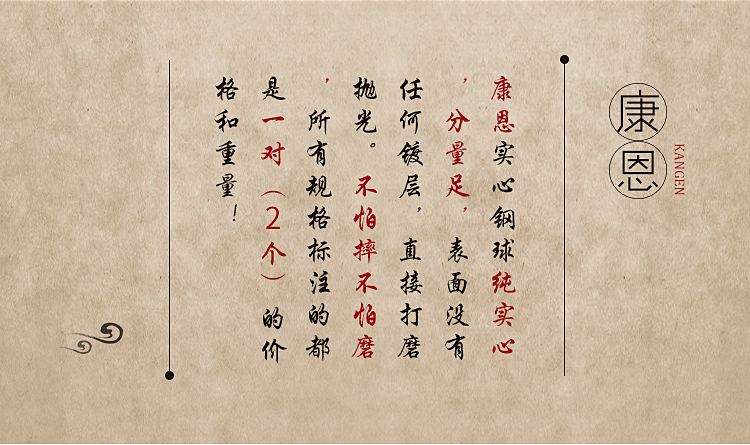 康恩
KANGEN
康恩实心钢球纯实心
，分量足，表面没有
任何镀层，直接打磨
抛光。不怕摔不怕磨
，所有规格标注的都
是一对（2个）的价
格和重量！